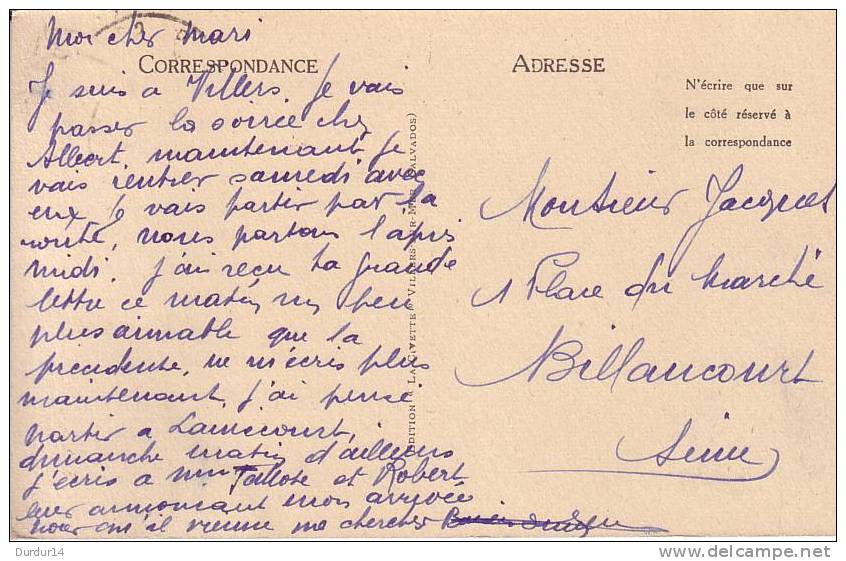 Mon cher mari
CORRESPONDANCE
Je suis a Villers, Je vais
passer la soirée chez
Albert, maintenant je
vais rentrer samedi avec
eux je vais partir par la
route, nous partons l'après
midi. J'ai reçu ta grande
lettre ce matin un peu
plus aimable que la
précédente, ne m'écris plus
maintenant, j'ai pensé
partir a
dimanche matin d'ailleurs
j'écris a Mme Tallote et Robert
leur annoncant mon arrivée
pour qu'il vienne me chercher
EDITION « LA CIVETTE » VILLERS-SUR-MER (CALVADOS)
ADRESSE
N'écrire que sur
le côté réservé à
la correspondance
Monsieur Jacques
1 Place du Marché
Billancourt
Seine
© Durdur14
http://www.delcampe.net